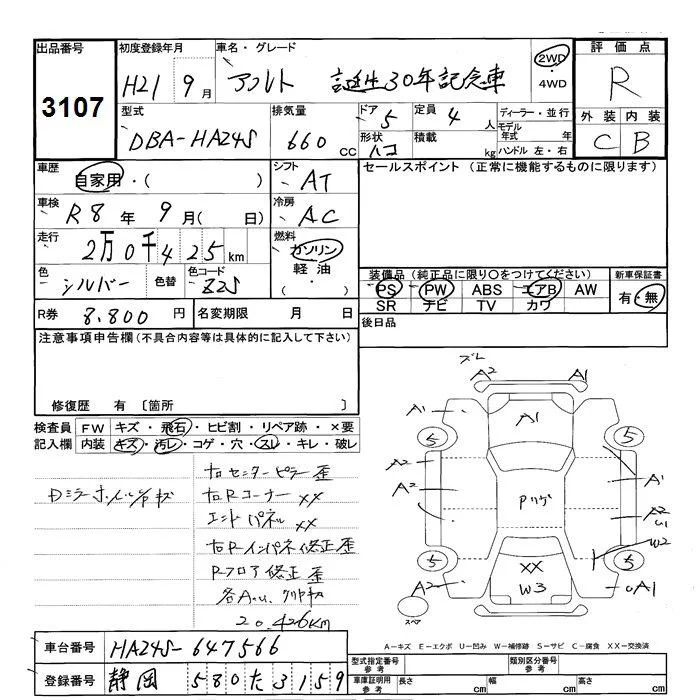 出品番号
3107
初度登録年月
H21 9月
車名・グレード
アルト 誕生30年記念車
2WD
・
4WD
評価点
R
外装 内装
C B
型式
DBA-HA24S
排気量
660 cc
ドア
5
定員
4 人
形状
ハコ
積載
kg
ディーラー・並行
モデル
年式 年
ハンドル 左・右
車歴
自家用・( )
シフト
AT
車検
R8年 9月( 日)
冷房
AC
走行
2万0千425km
燃料
ガソリン
軽油
( ・ )
色
シルバー
色替
色コード
Z2S
セールスポイント (正常に機能するものに限ります)
装備品(純正品に限り○をつけてください)
PS PW ABS エアB AW
SR ナビ TV カワ
新車保証書
有・無
R券
8.800円
名変期限 月 日
後日品
注意事項申告欄(不具合内容等は具体的に記入して下さい)
修復歴 有 〔箇所 〕
検査員
記入欄
FW キズ・飛石・ヒビ割・リペア跡・×要
内装 キズ・汚レ・コゲ・穴・スレ・キレ・破レ
右センターピラー歪
右Rコーナー XX
エンドパネル XX
右Rインパネ修正歪
Rフロア修正歪
20,426km
ズレ
A2 A1
A1
A1 A1
5 5
A2 A1
A2 A2
U1
Pリゲ
W2
5 5
XX
W3
A2 A1
スペア
A-キズ E-エクボ U-凹み W-補修跡 S-サビ C-腐食 XX-交換済
車台番号
HA24S-647566
登録番号
静岡 580た3159
型式指定番号
参考
類別区分番号
参考
車庫証明用
参考
長さ cm 幅 cm 高さ cm